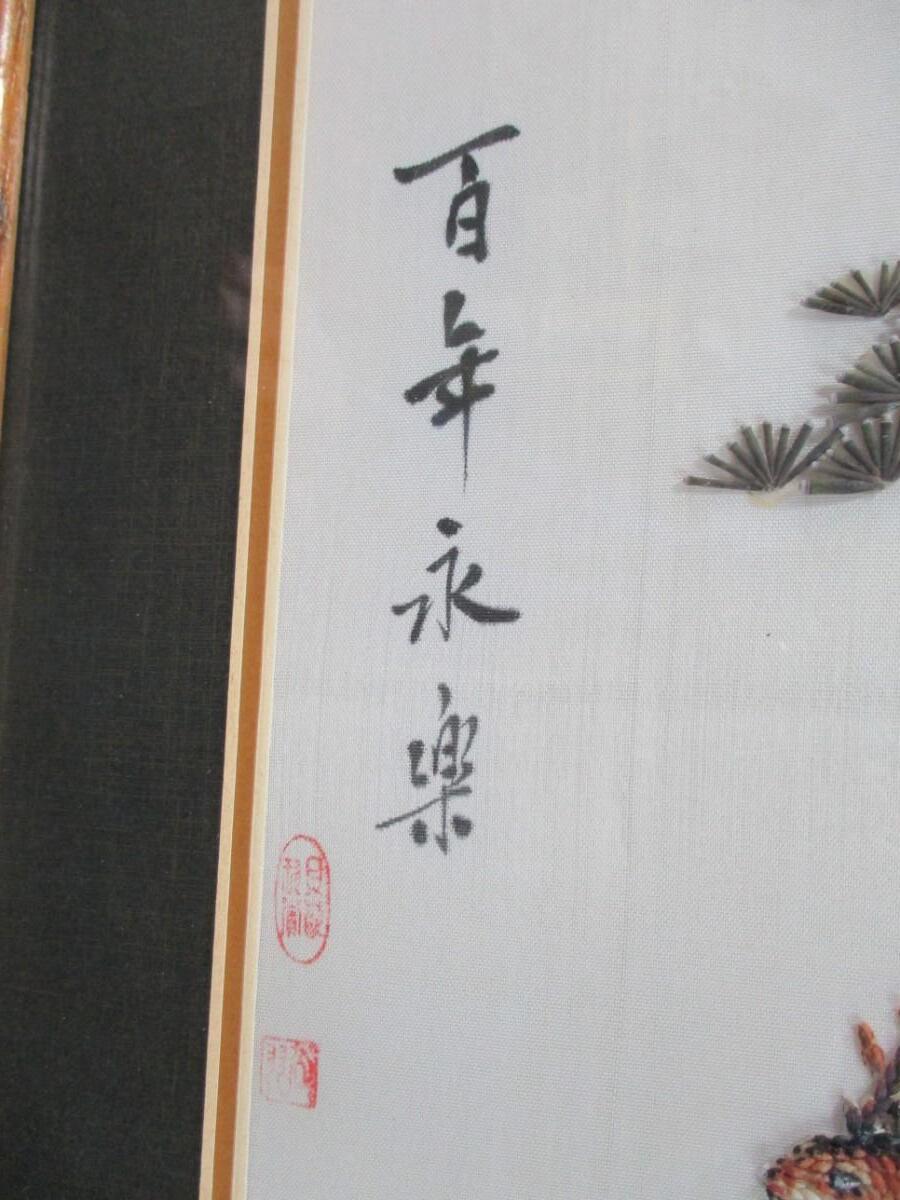 百年永樂